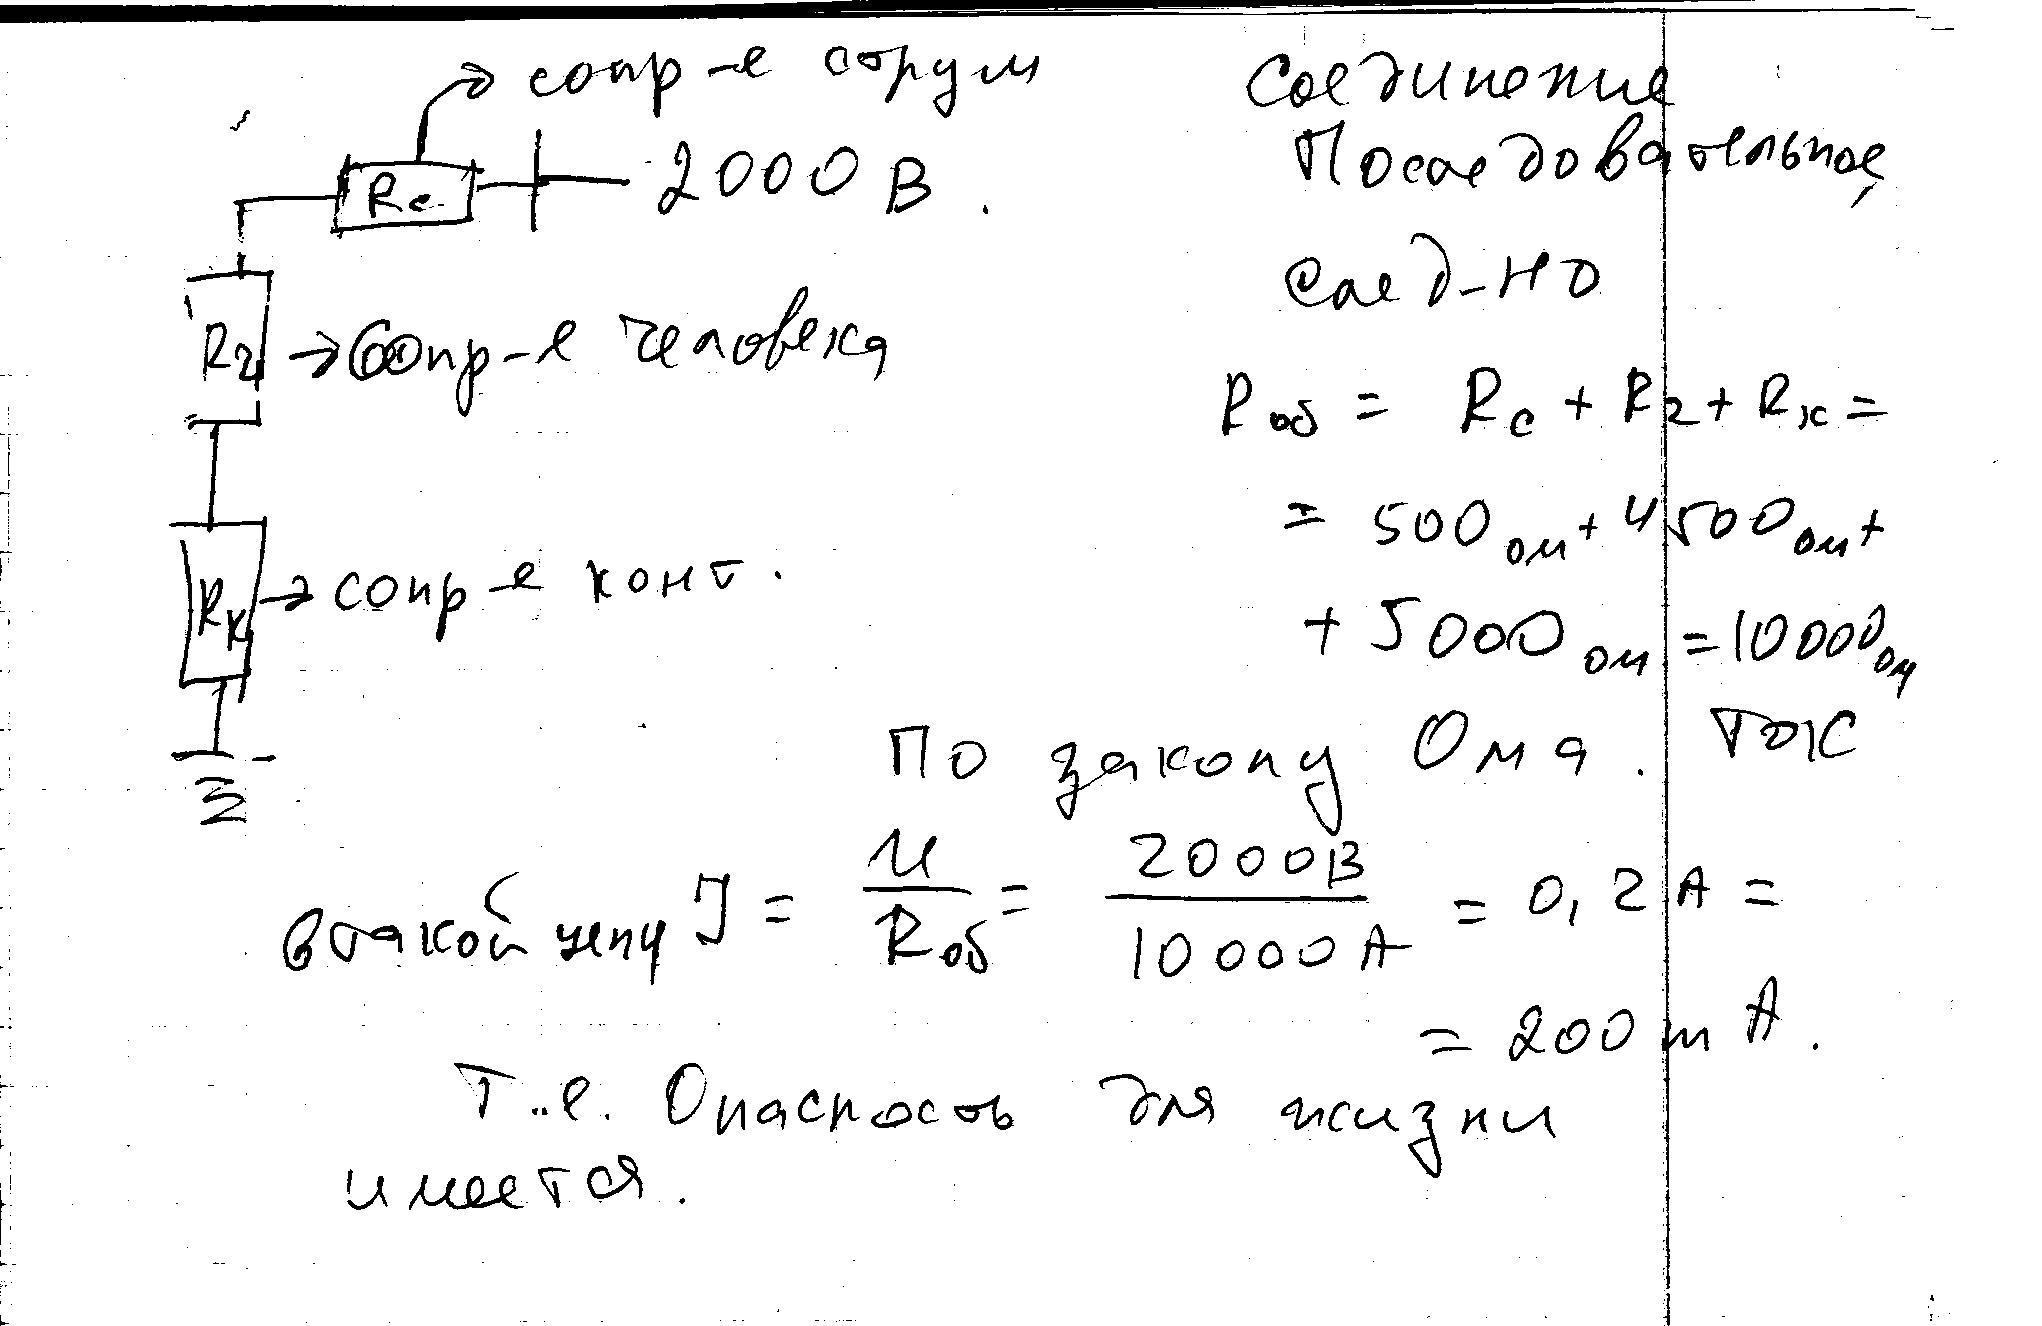 сопр-е струи
Rc
2000 В.
R2
сопр-е человека
Rк
сопр-е конт.
Соединение
Последовательное,
след-но
Rоб = Rc + R2 + Rк =
= 500 ом + 4500 ом +
+ 5000 ом = 10000 ом
По закону Ома. ток
в такой цепи J = U/Rоб = 2000В/10000А = 0,2 А =
= 200 mA.
Т.е. Опасность для жизни
имеется.